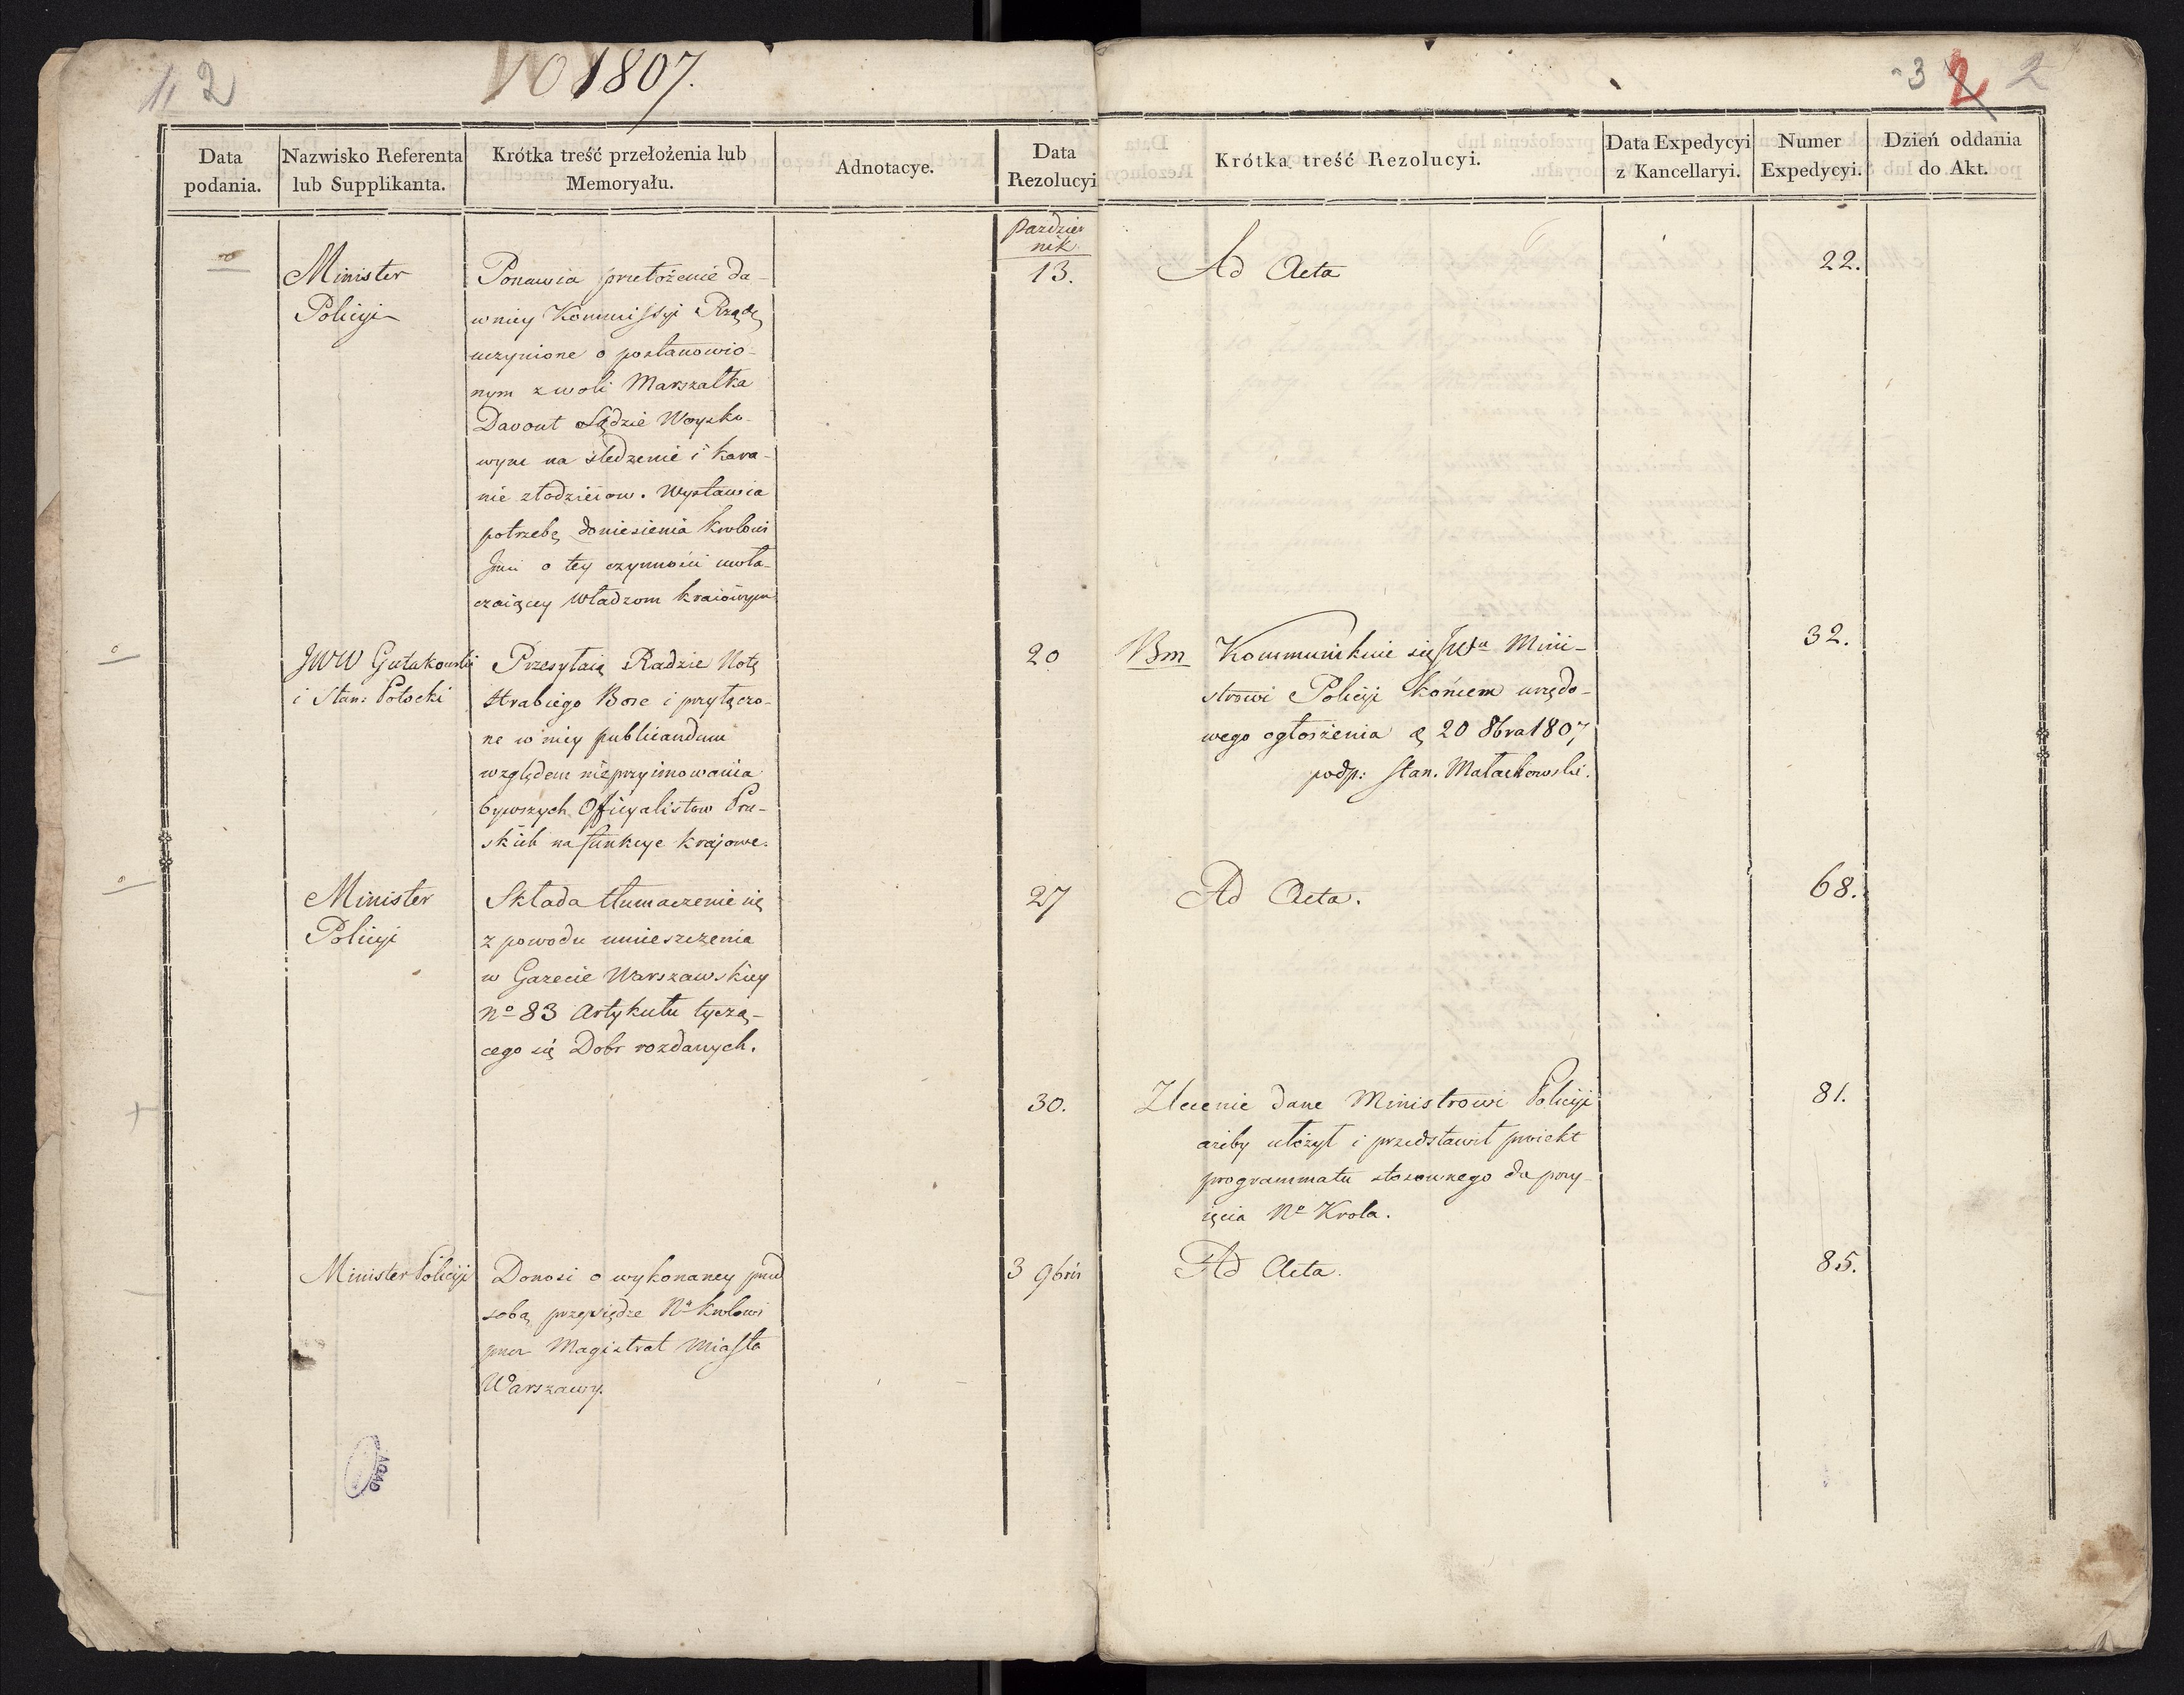 2
1807.
3 2 2
Data podania.
Nazwisko Referenta lub Supplikanta.
Krótka treść przełożenia lub Memoryału.
Adnotacye.
Data Rezolucyi
Krótka treść Rezolucyi.
Data Expedycyi z Kancellaryi.
Numer Expedycyi.
Dzień oddania do Akt.
Minister
Policyi
Ponawia przełożenie da-
wniey Kommissyi Rządz
uczynione o postanowio-
nym z woli Marszałka
Davout Sądzie Woysko-
wym na śledzenie i kara-
nie złodzieiow. Wystawia
potrzebę doniesienia Krolowi
Jmci o tey czynności uwła-
czaiącey Władzom kraiowym
Paździer
nik
13.
Ad Acta
22.
JWW Gutakowski
i Stan: Potocki
Przesyłaią Radzie Notę
Hrabiego Bose i przyłączo-
ne w niey publicandum
względem nieprzyimowania
bywszych Officyalistow Pru-
skich na funkcye krajowe.
20
Bm
Kommunikuie się JWu Mini-
strowi Policyi końcem urzędo-
wego ogłoszenia d 20 8bra 1807
podp: Stan. Małachowski.
32.
Minister
Policyi
Składa tłumaczenie się
z powodu umieszczenia
w Gazecie Warszawskiey
No 83 Artykułu tyczą-
cego się Dobr rozdanych.
27
Ad Acta.
68.
30.
Zlecenie dane Ministrowi Policyi
ażeby ułożył i przedstawił proiekt
programmatu stosownego do przy-
ięcia No Krola.
81.
Minister Policyi
Donosi o wykonaney przed
sobą przysiędze Nu Krolowi
przez Magistrat Miasta
Warszawy.
3 9bris
Ad Acta.
85.
AGAD